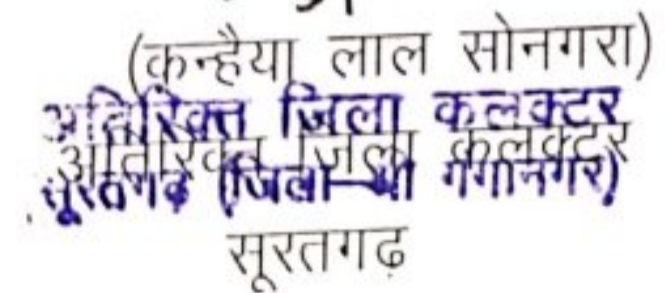 (कन्हैया लाल सोनगरा)
अतिरिक्त जिला कलक्टर
अतिरिक्त जिला कलक्टर
सूरतगढ (जिला-श्री गंगानगर)
सूरतगढ़